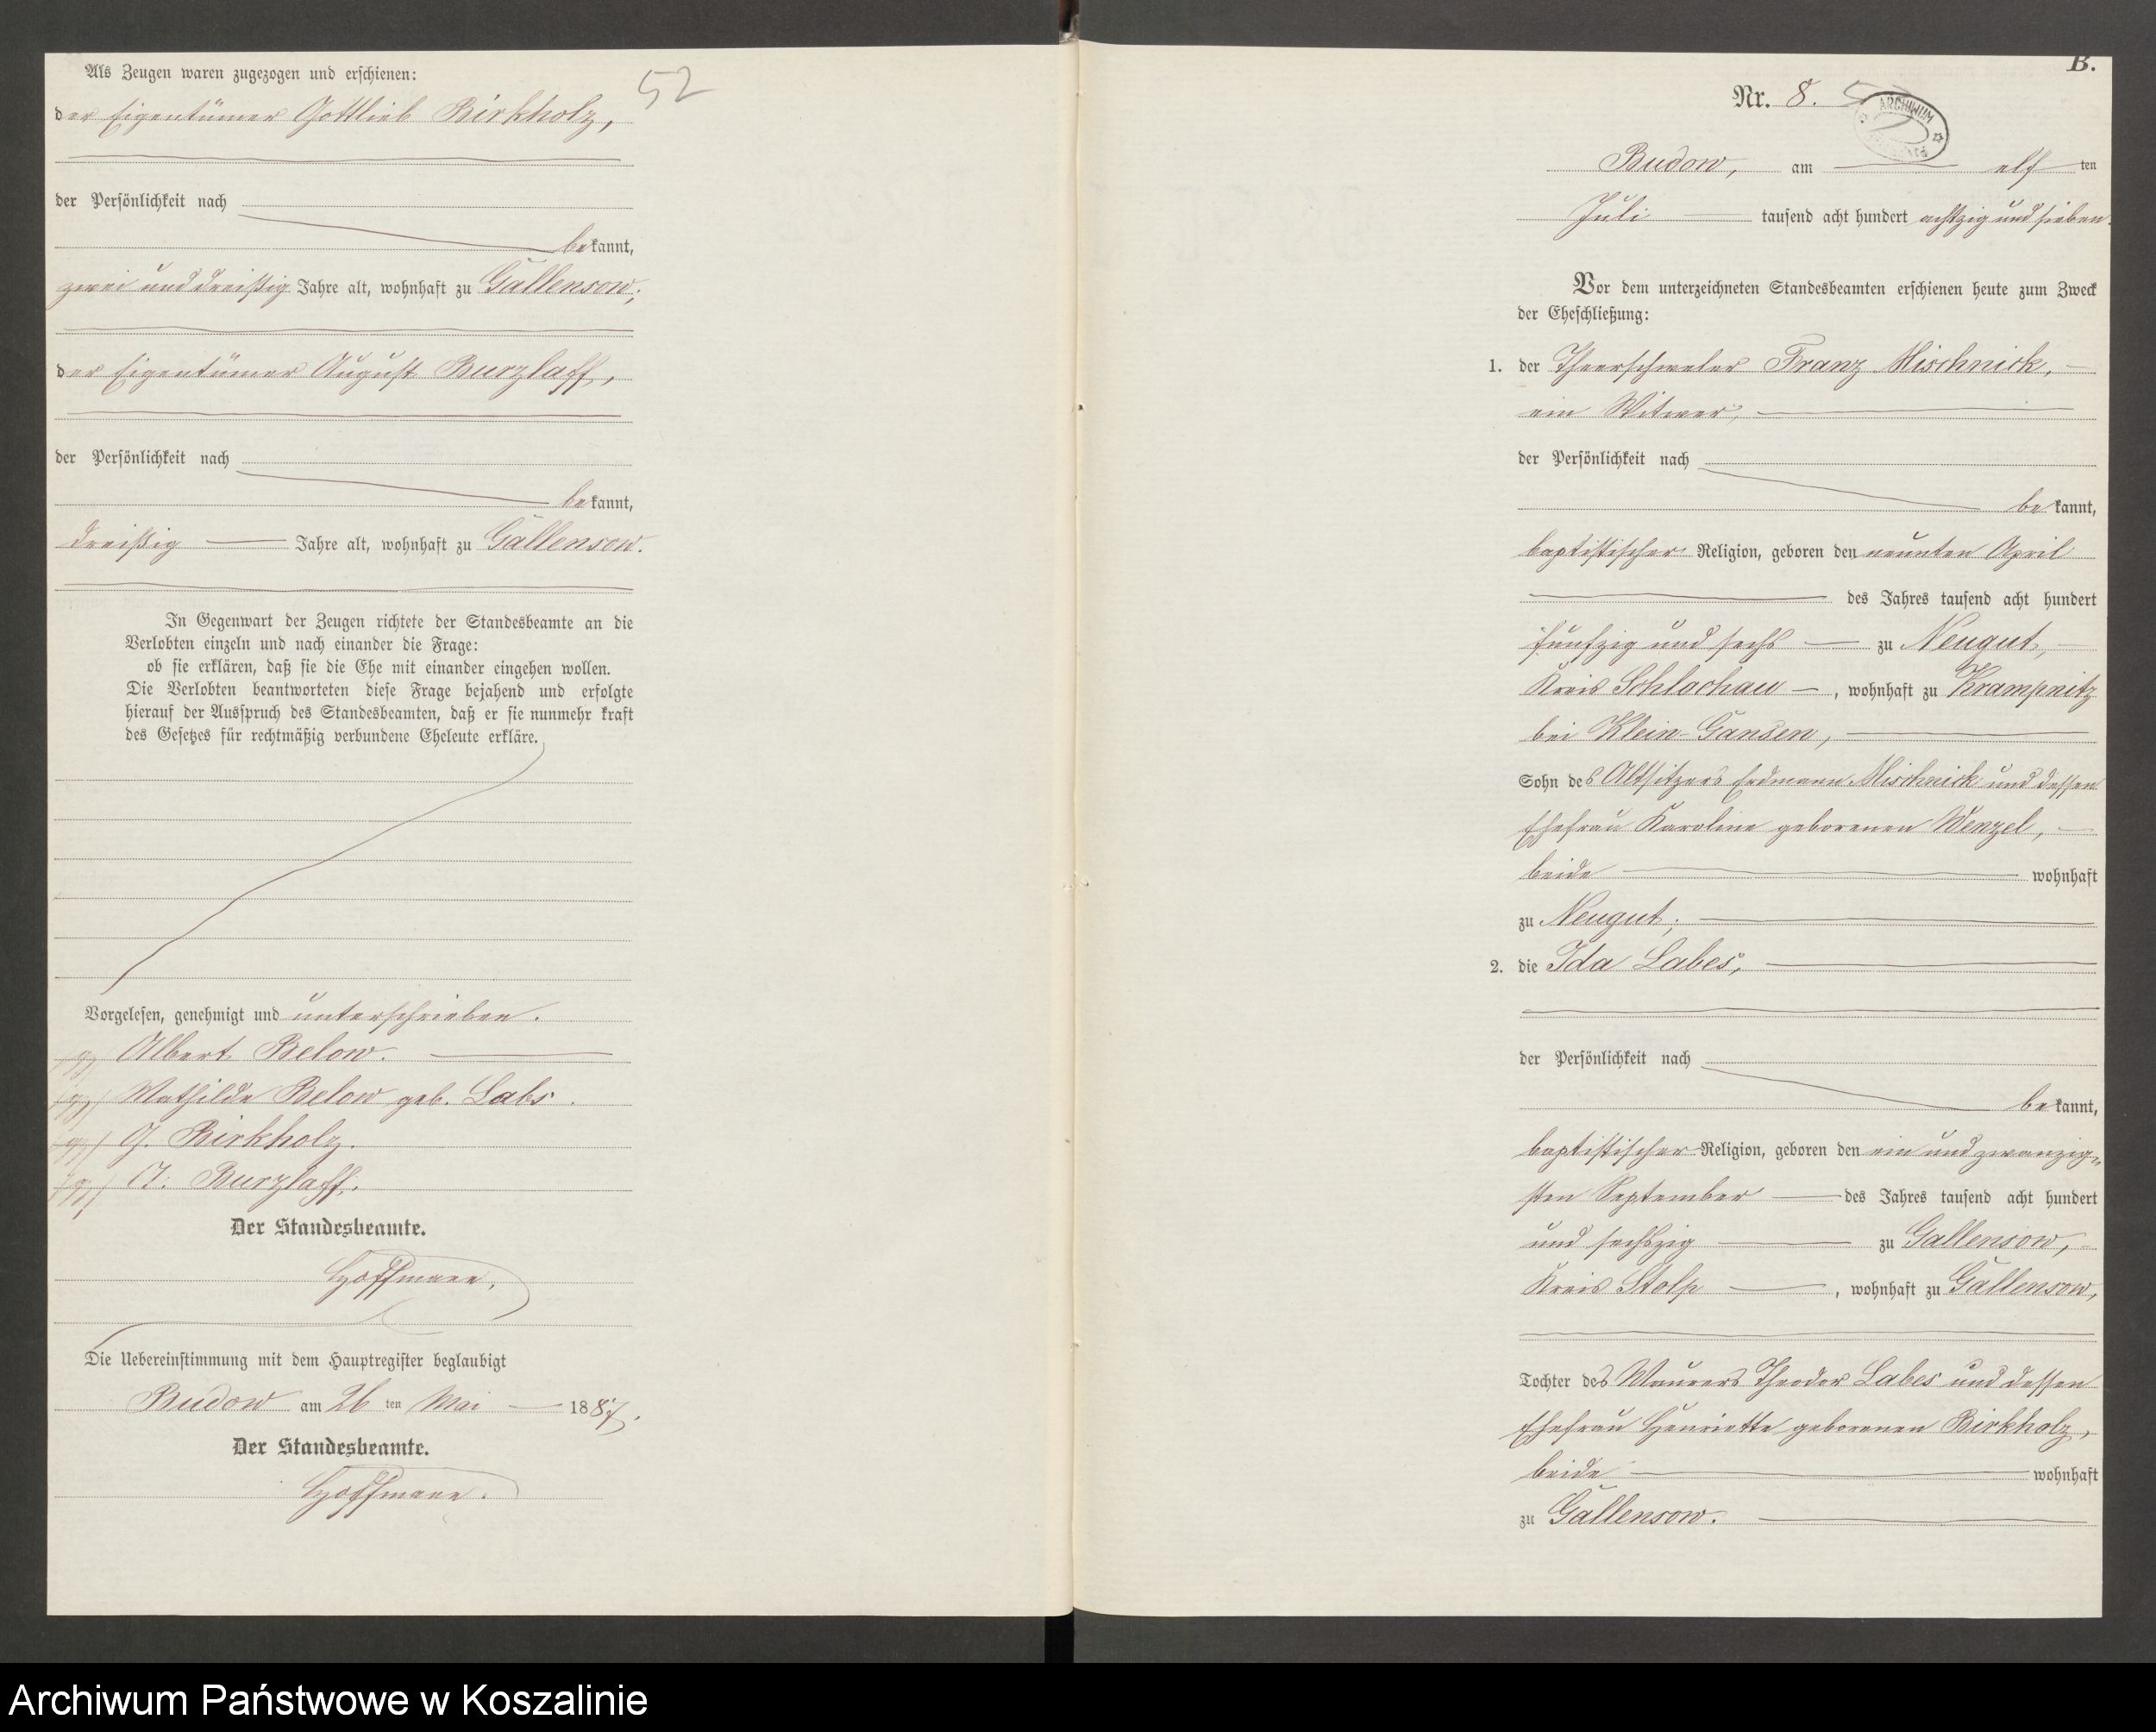 Als Zeugen waren zugezogen und erschienen:
52
der Eigentümer Gottlieb Birkholz,
der Persönlichkeit nach
bekannt,
zwei und dreißig Jahre alt, wohnhaft zu Gallensow;
der Eigentümer August Burzlaff,
der Persönlichkeit nach
bekannt,
dreißig Jahre alt, wohnhaft zu Gallensow.
In Gegenwart der Zeugen richtete der Standesbeamte an die
Verlobten einzeln und nach einander die Frage:
ob sie erklären, daß sie die Ehe mit einander eingehen wollen.
Die Verlobten beantworteten diese Frage bejahend und erfolgte
hierauf der Ausspruch des Standesbeamten, daß er sie nunmehr kraft
des Gesetzes für rechtmäßig verbundene Eheleute erkläre.
Vorgelesen, genehmigt und unterschrieben.
gez. Albert Below.
gez. Mathilde Below geb. Labs.
gez. G. Birkholz.
gez. A. Burzlaff.
Der Standesbeamte.
Hoffmann.
Die Uebereinstimmung mit dem Hauptregister beglaubigt
Budow am 26 ten Mai 1887.
Der Standesbeamte.
Hoffmann.
B.
Nr. 8.
ARCHIWUM
Budow, am elf ten
Juli tausend acht hundert achtzig und sieben.
Vor dem unterzeichneten Standesbeamten erschienen heute zum Zweck
der Eheschließung:
1. der Theerschweler Franz Mischnick,
ein Witwer,
der Persönlichkeit nach
bekannt,
baptistischer Religion, geboren den neunten April
des Jahres tausend acht hundert
fünfzig und sechs zu Neugut,
Kreis Schlochau, wohnhaft zu Krampnitz
bei Klein-Gansen,
Sohn des Altsitzers Erdmann Mischnick und dessen
Ehefrau Karoline geborenen Wenzel,
beide wohnhaft
zu Neugut;
2. die Ida Labes,
der Persönlichkeit nach
bekannt,
baptistischer Religion, geboren den ein und zwanzig-
sten September des Jahres tausend acht hundert
und sechszig zu Gallensow,
Kreis Stolp, wohnhaft zu Gallensow,
Tochter des Maurers Theodor Labes und dessen
Ehefrau Henriette geborenen Birkholz,
beide wohnhaft
zu Gallensow.
Archiwum Państwowe w Koszalinie